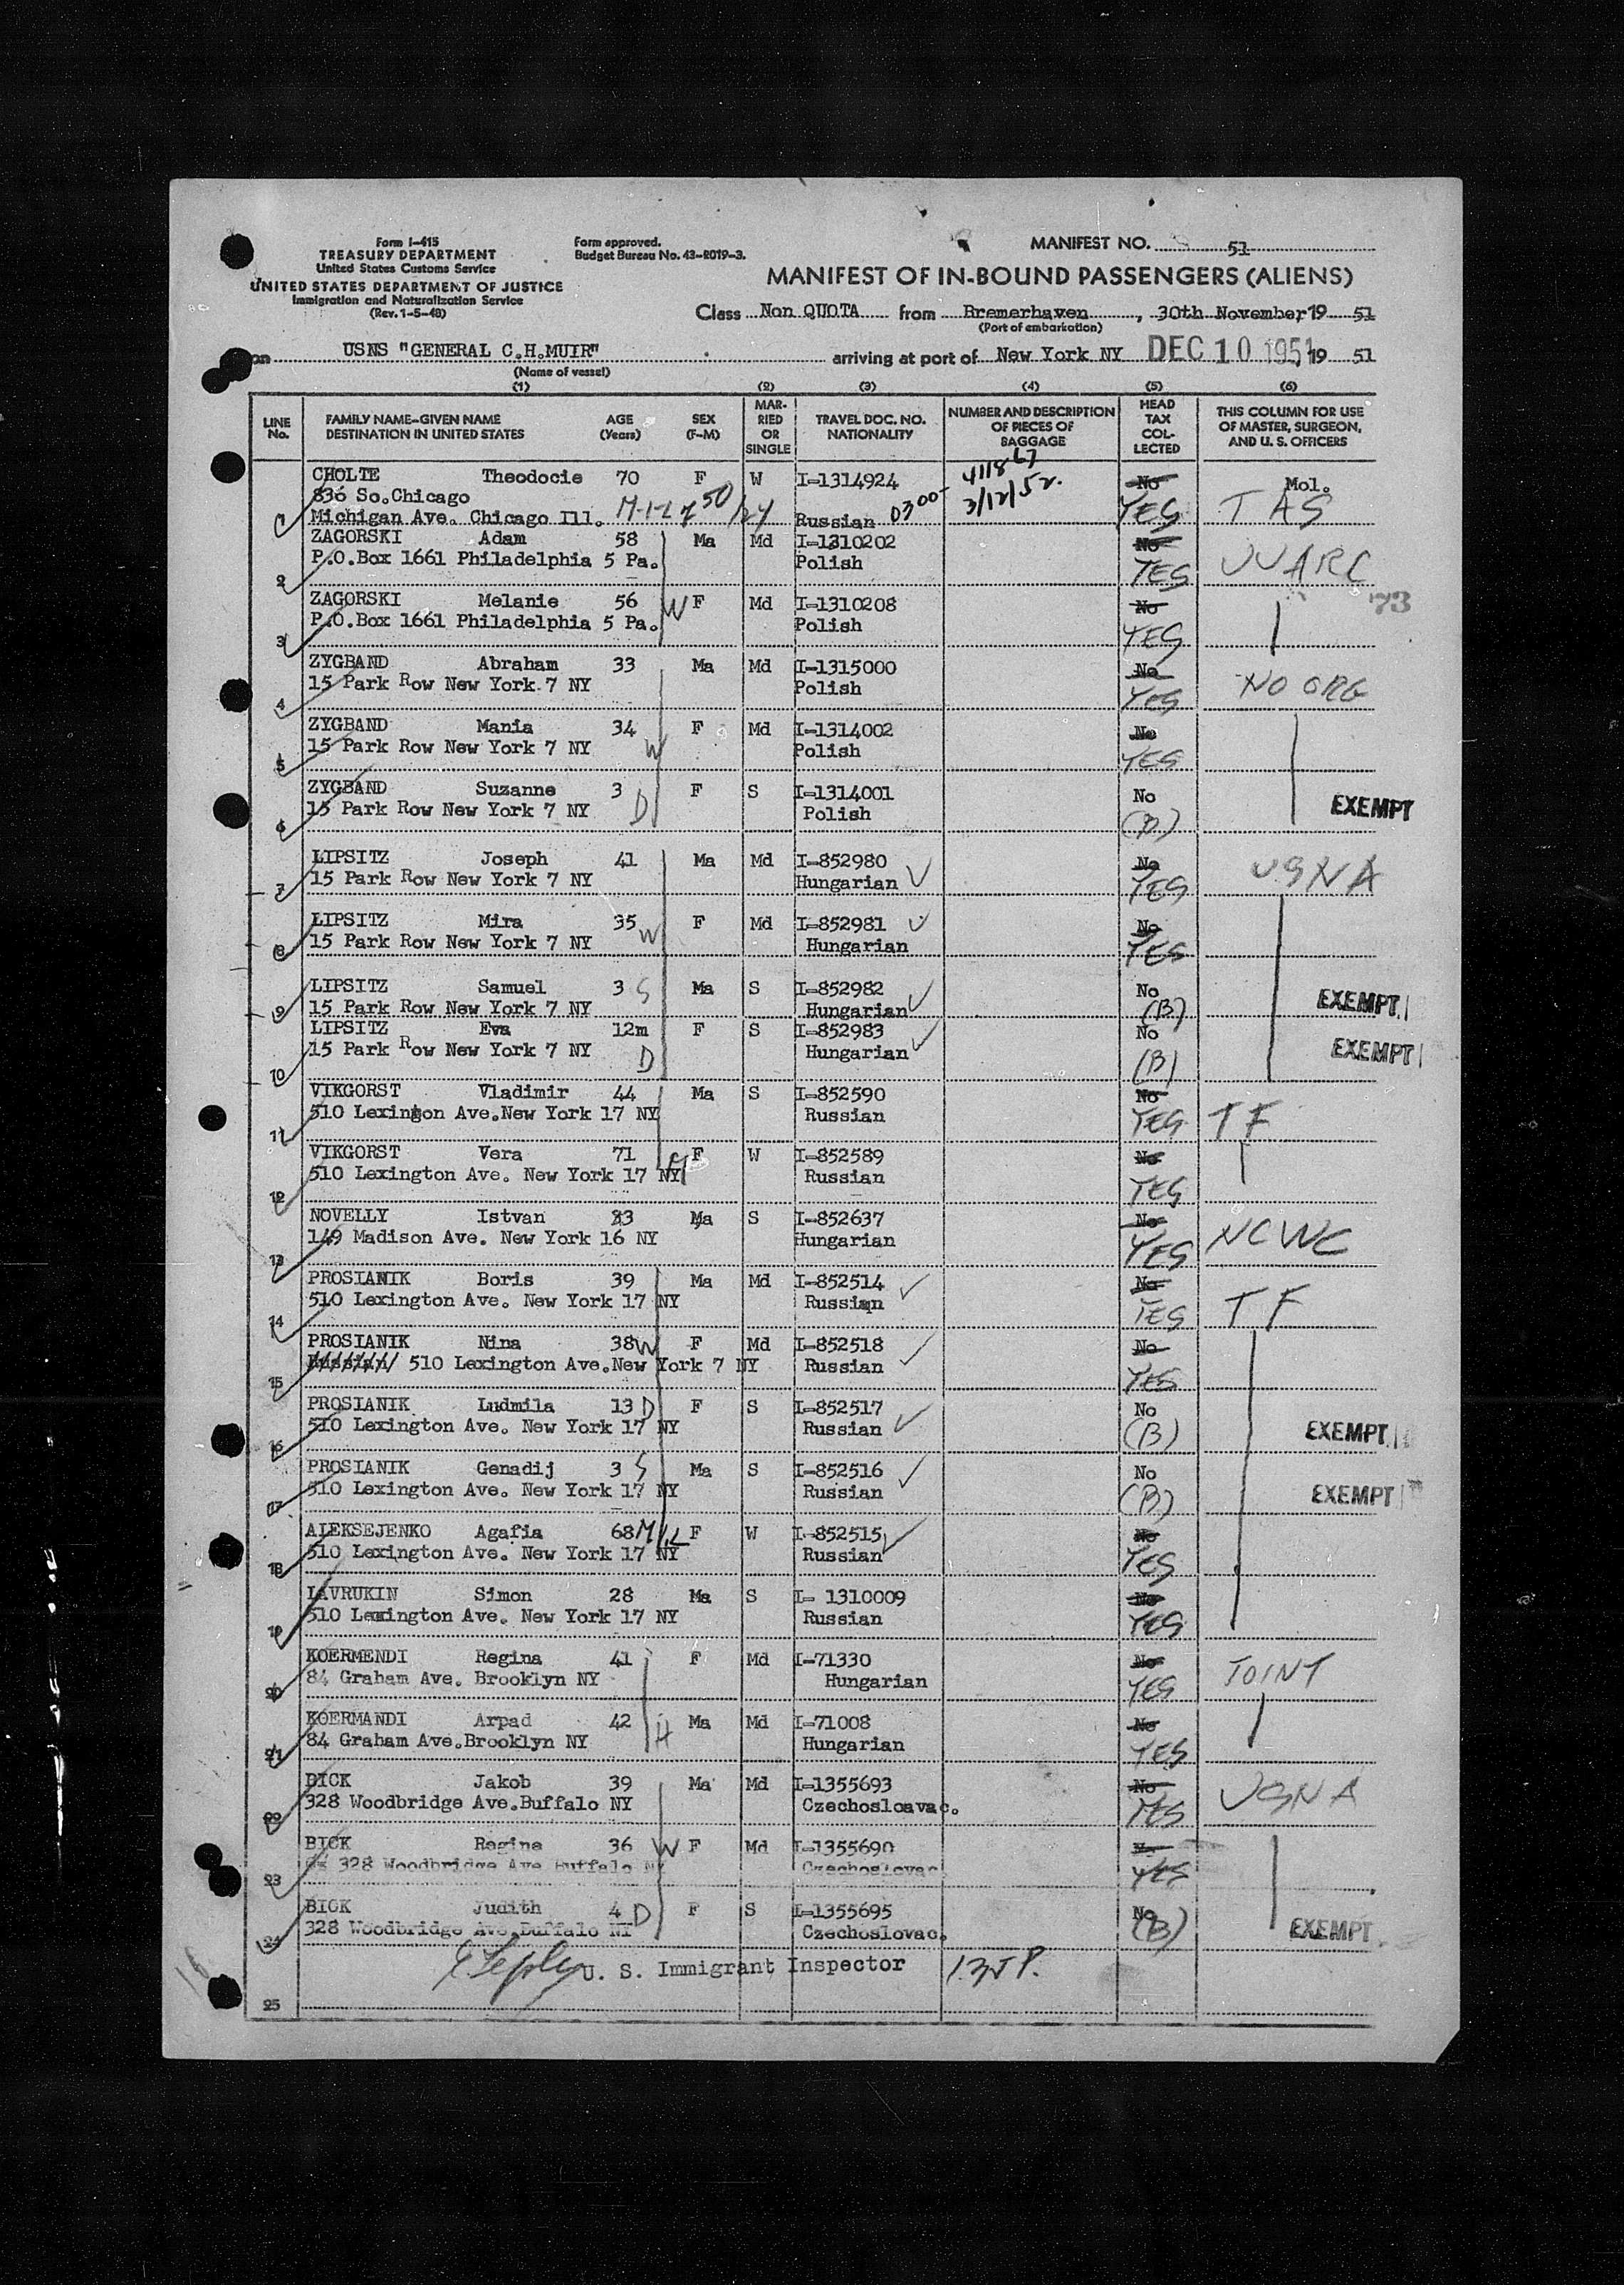 Form I-415
TREASURY DEPARTMENT
United States Customs Service
UNITED STATES DEPARTMENT OF JUSTICE
Immigration and Naturalization Service
(Rev. 1-5-48)
Form approved.
Budget Bureau No. 43-R019-3.
MANIFEST NO. 51
MANIFEST OF IN-BOUND PASSENGERS (ALIENS)
Class Non QUOTA from Bremerhaven, 30th November, 19 51
(Port of embarkation)
on USNS "GENERAL C.H.MUIR" arriving at port of New York NY DEC 10 1951, 19 51
(Name of vessel)
(1) (2) (3) (4) (5) (6)
LINE No. FAMILY NAME-GIVEN NAME DESTINATION IN UNITED STATES AGE (Years) SEX (F-M) MARRIED OR SINGLE TRAVEL DOC. NO. NATIONALITY NUMBER AND DESCRIPTION OF PIECES OF BAGGAGE HEAD TAX COLLECTED THIS COLUMN FOR USE OF MASTER, SURGEON, AND U. S. OFFICERS
CHOLTE Theodocie 70 F W I-1314924 No Mol.
836 So.Chicago 3/12/52.
Michigan Ave. Chicago Ill. Russian 0300- YES TAS
ZAGORSKI Adam 58 Ma Md I-1310202 No
2 P.O.Box 1661 Philadelphia 5 Pa. Polish YES
ZAGORSKI Melanie 56 W F Md I-1310208 No 73
3 P.O.Box 1661 Philadelphia 5 Pa. Polish YES
ZYGBAND Abraham 33 Ma Md I-1315000 No
4 15 Park Row New York 7 NY Polish YES NO ORG
ZYGBAND Mania 34 F Md I-1314002 No
5 15 Park Row New York 7 NY W Polish YES
ZYGBAND Suzanne 3 F S I-1314001 No EXEMPT
6 15 Park Row New York 7 NY D Polish (B)
LIPSITZ Joseph 41 Ma Md I-852980 No
7 15 Park Row New York 7 NY Hungarian YES USNA
LIPSITZ Mira 35 F Md I-852981 No
8 15 Park Row New York 7 NY W Hungarian YES
LIPSITZ Samuel 3 S Ma S I-852982 No EXEMPT
9 15 Park Row New York 7 NY Hungarian (B)
LIPSITZ Eva 12m F S I-852983 No EXEMPT
10 15 Park Row New York 7 NY D Hungarian (B)
VIKGORST Vladimir 44 Ma S I-852590 No
11 510 Lexingon Ave.New York 17 NY Russian YES TF
VIKGORST Vera 71 F W I-852589 No
12 510 Lexington Ave. New York 17 NY M Russian YES
NOVELLY Istvan 23 Ma S I-852637 No
13 149 Madison Ave. New York 16 NY Hungarian YES NCWC
PROSIANIK Boris 39 Ma Md I-852514 No
14 510 Lexington Ave. New York 17 NY Russian YES TF
PROSIANIK Nina 38 W F Md I-852518 No
15 Russian 510 Lexington Ave.New York 7 NY Russian YES
PROSIANIK Ludmila 13 D F S I-852517 No
16 510 Lexington Ave. New York 17 NY Russian (B) EXEMPT
PROSIANIK Genadij 3 S Ma S I-852516 No
17 510 Lexington Ave. New York 17 NY Russian (B) EXEMPT
ALEKSEJENKO Agafia 68 M/L F W I-852515 No
18 510 Lexington Ave. New York 17 NY Russian YES
LAVRUKIN Simon 28 Ma S I- 1310009 No
19 510 Lexington Ave. New York 17 NY Russian YES
KOERMENDI Regina 41 F Md I-71330 No
20 84 Graham Ave. Brooklyn NY Hungarian YES JOINT
KOERMANDI Arpad 42 H Ma Md I-71008 No
21 84 Graham Ave.Brooklyn NY Hungarian YES
BICK Jakob 39 Ma Md I-1355693 No
22 328 Woodbridge Ave.Buffalo NY Czechosloavac. YES USNA
BICK Regina 36 W F Md I-1355690
23 328 Woodbridge Ave Buffalo NY Czechoslovac YES
BICK Judith 4 D F S I-1355695 No
24 328 Woodbridge Ave.Buffalo NY Czechoslovac. (B) EXEMPT
U. S. Immigrant Inspector
25